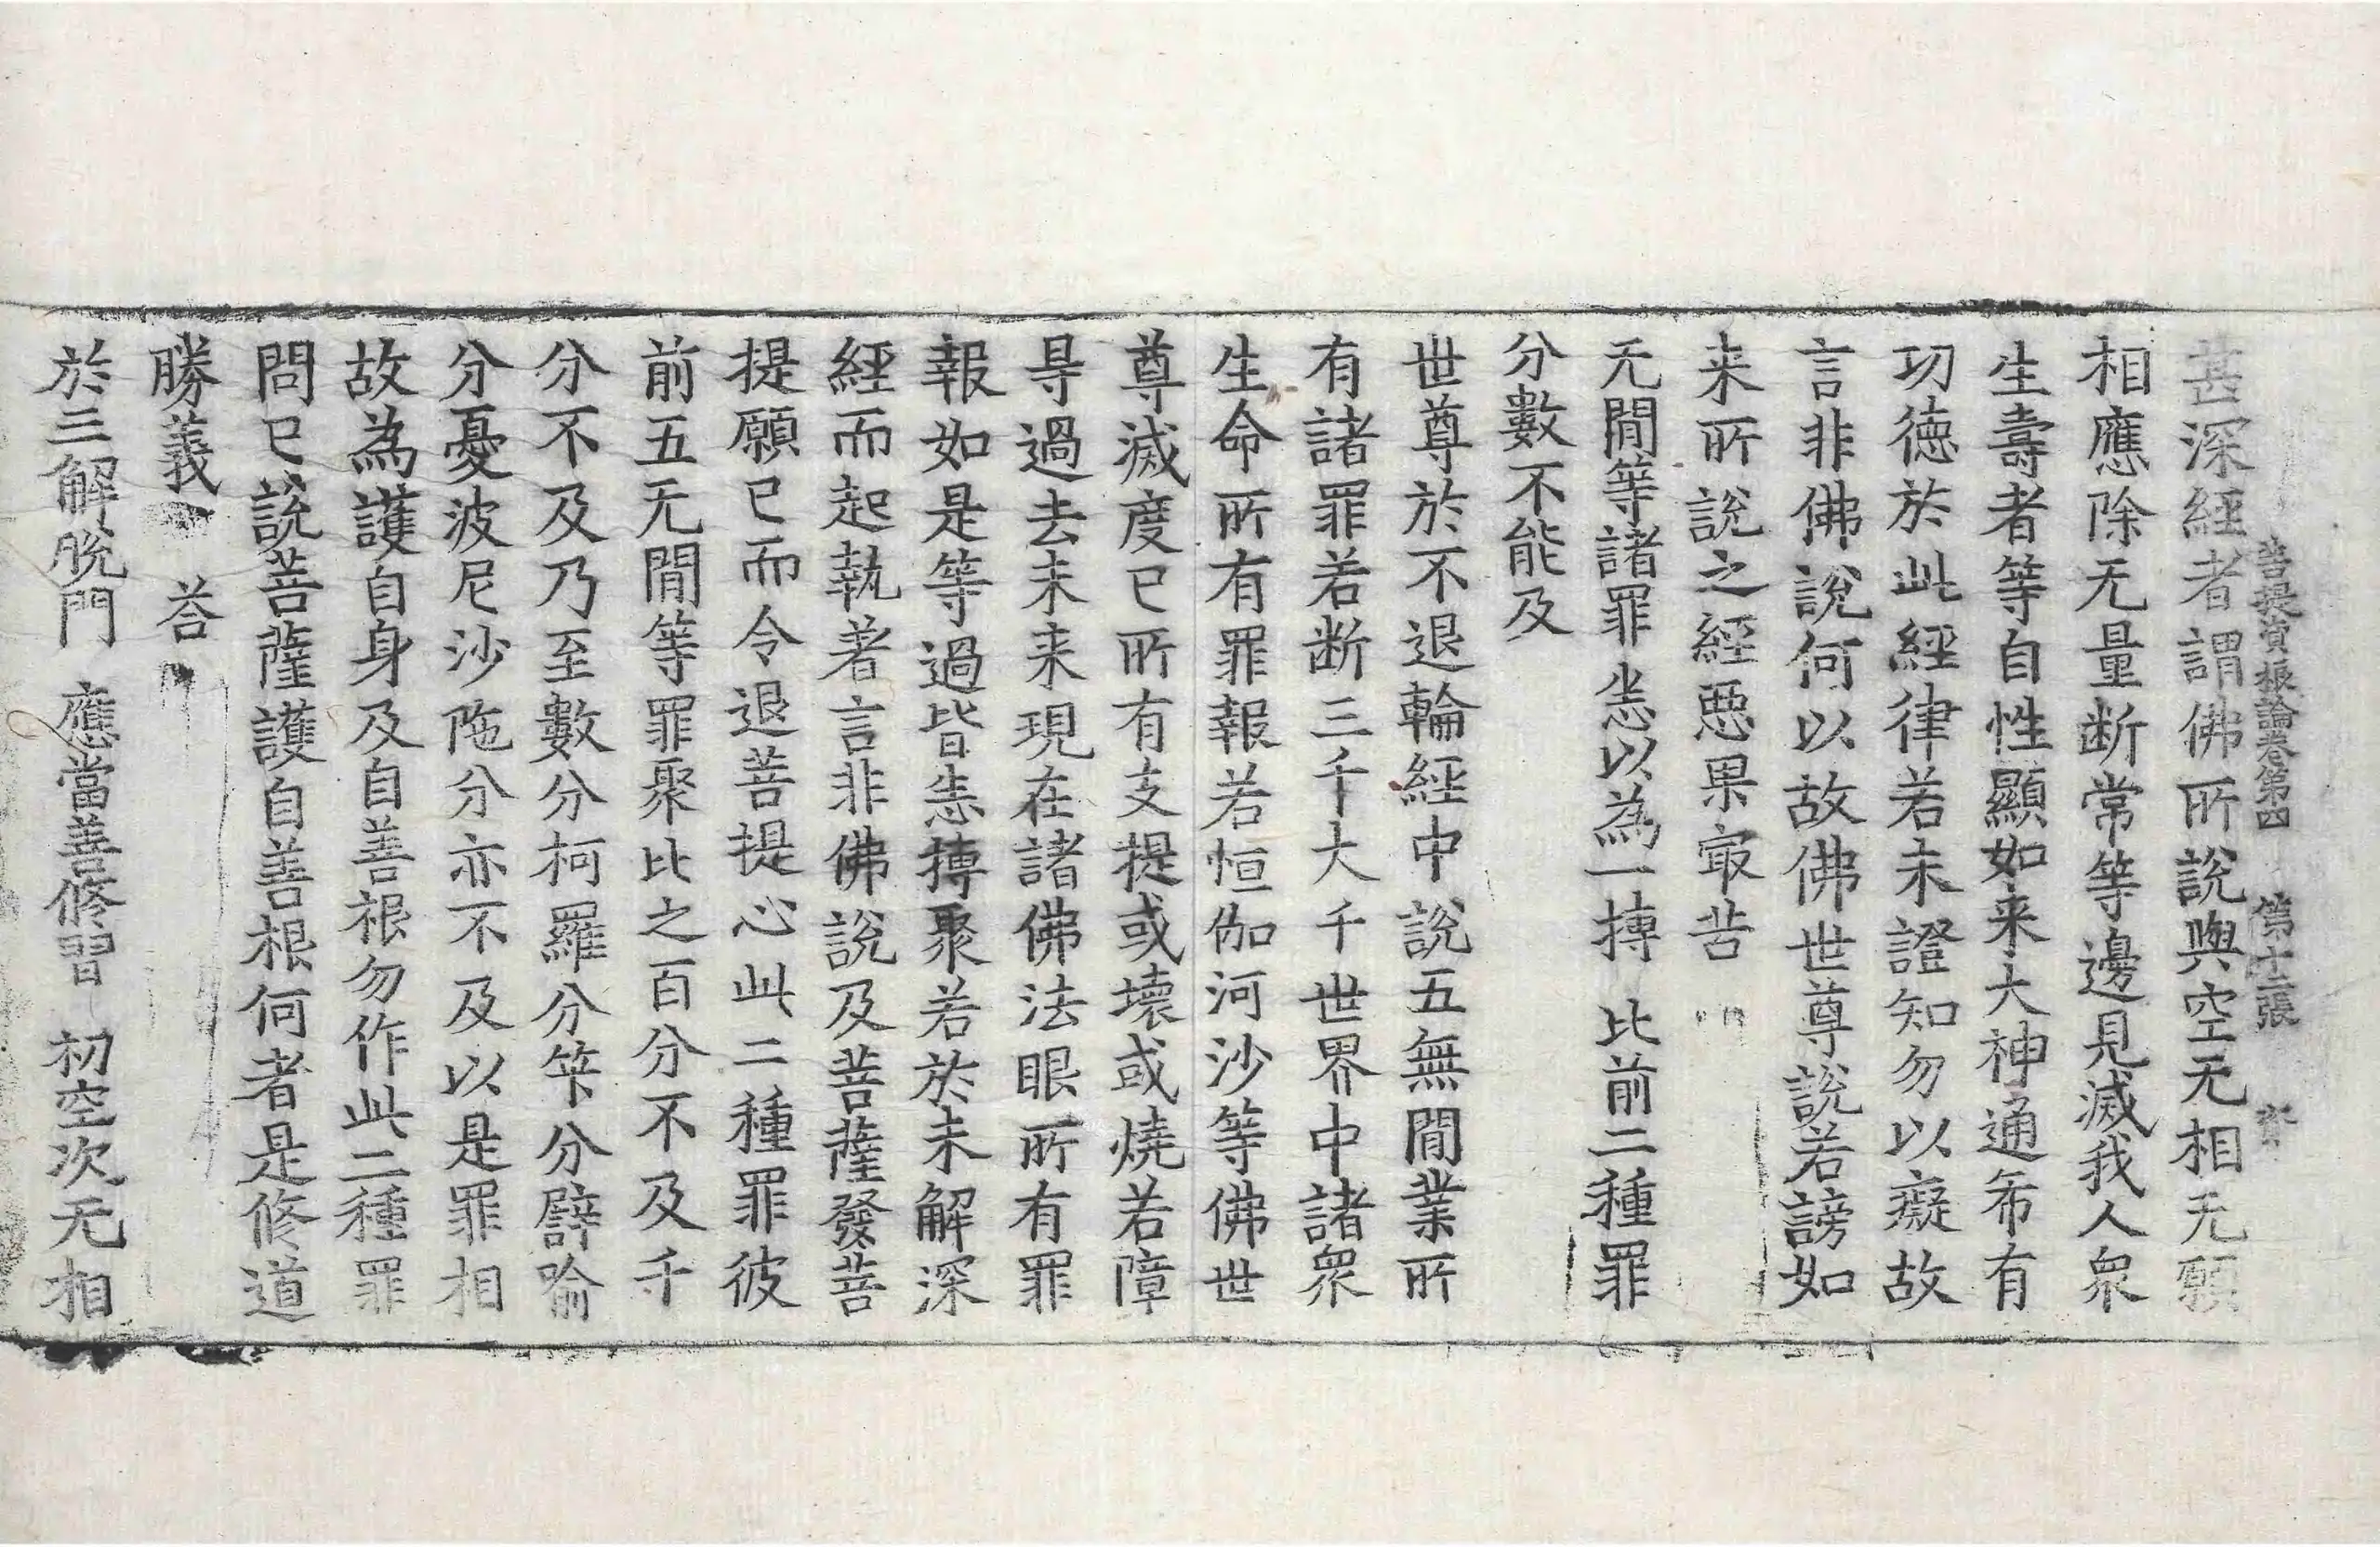 菩提資粮論卷第四　第十二張
甚深經者謂佛所說與空无相无願
相應除无量断常等邊見滅我人衆
生壽者等自性顯如来大神通希有
功德於此經律若未證知勿以癡故
言非佛說何以故佛世尊說若謗如
来所說之經惡果㝡苦
无閒等諸罪　恙以為一摶　比前二種罪
分數不能及
世尊於不退輪經中說五無閒業所
有諸罪若断三千大千世界中諸衆
生命所有罪報若恒伽河沙等佛世
尊滅度已所有支提或壞或燒若障
㝵過去未来現在諸佛法眼所有罪
報如是等過皆恙摶聚若於未解深
經而起執著言非佛說及菩薩發菩
提願已而令退菩提心此二種罪彼
前五无閒等罪聚比之百分不及千
分不及乃至數分柯羅分笇分譬喻
分憂波尼沙陁分亦不及以是罪相
故為護自身及自善根勿作此二種罪
問已說菩薩護自善根何者是修道
勝義　荅
於三解脫門　應當善修習　初空次无相